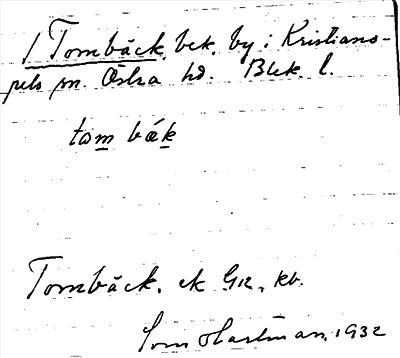 1 Tornbäck, bek. by i Kristiano-
pels sn. Östra hd. Blek. l.
tom bäk
Tornbäck. ek
Tom Hartman, 1932